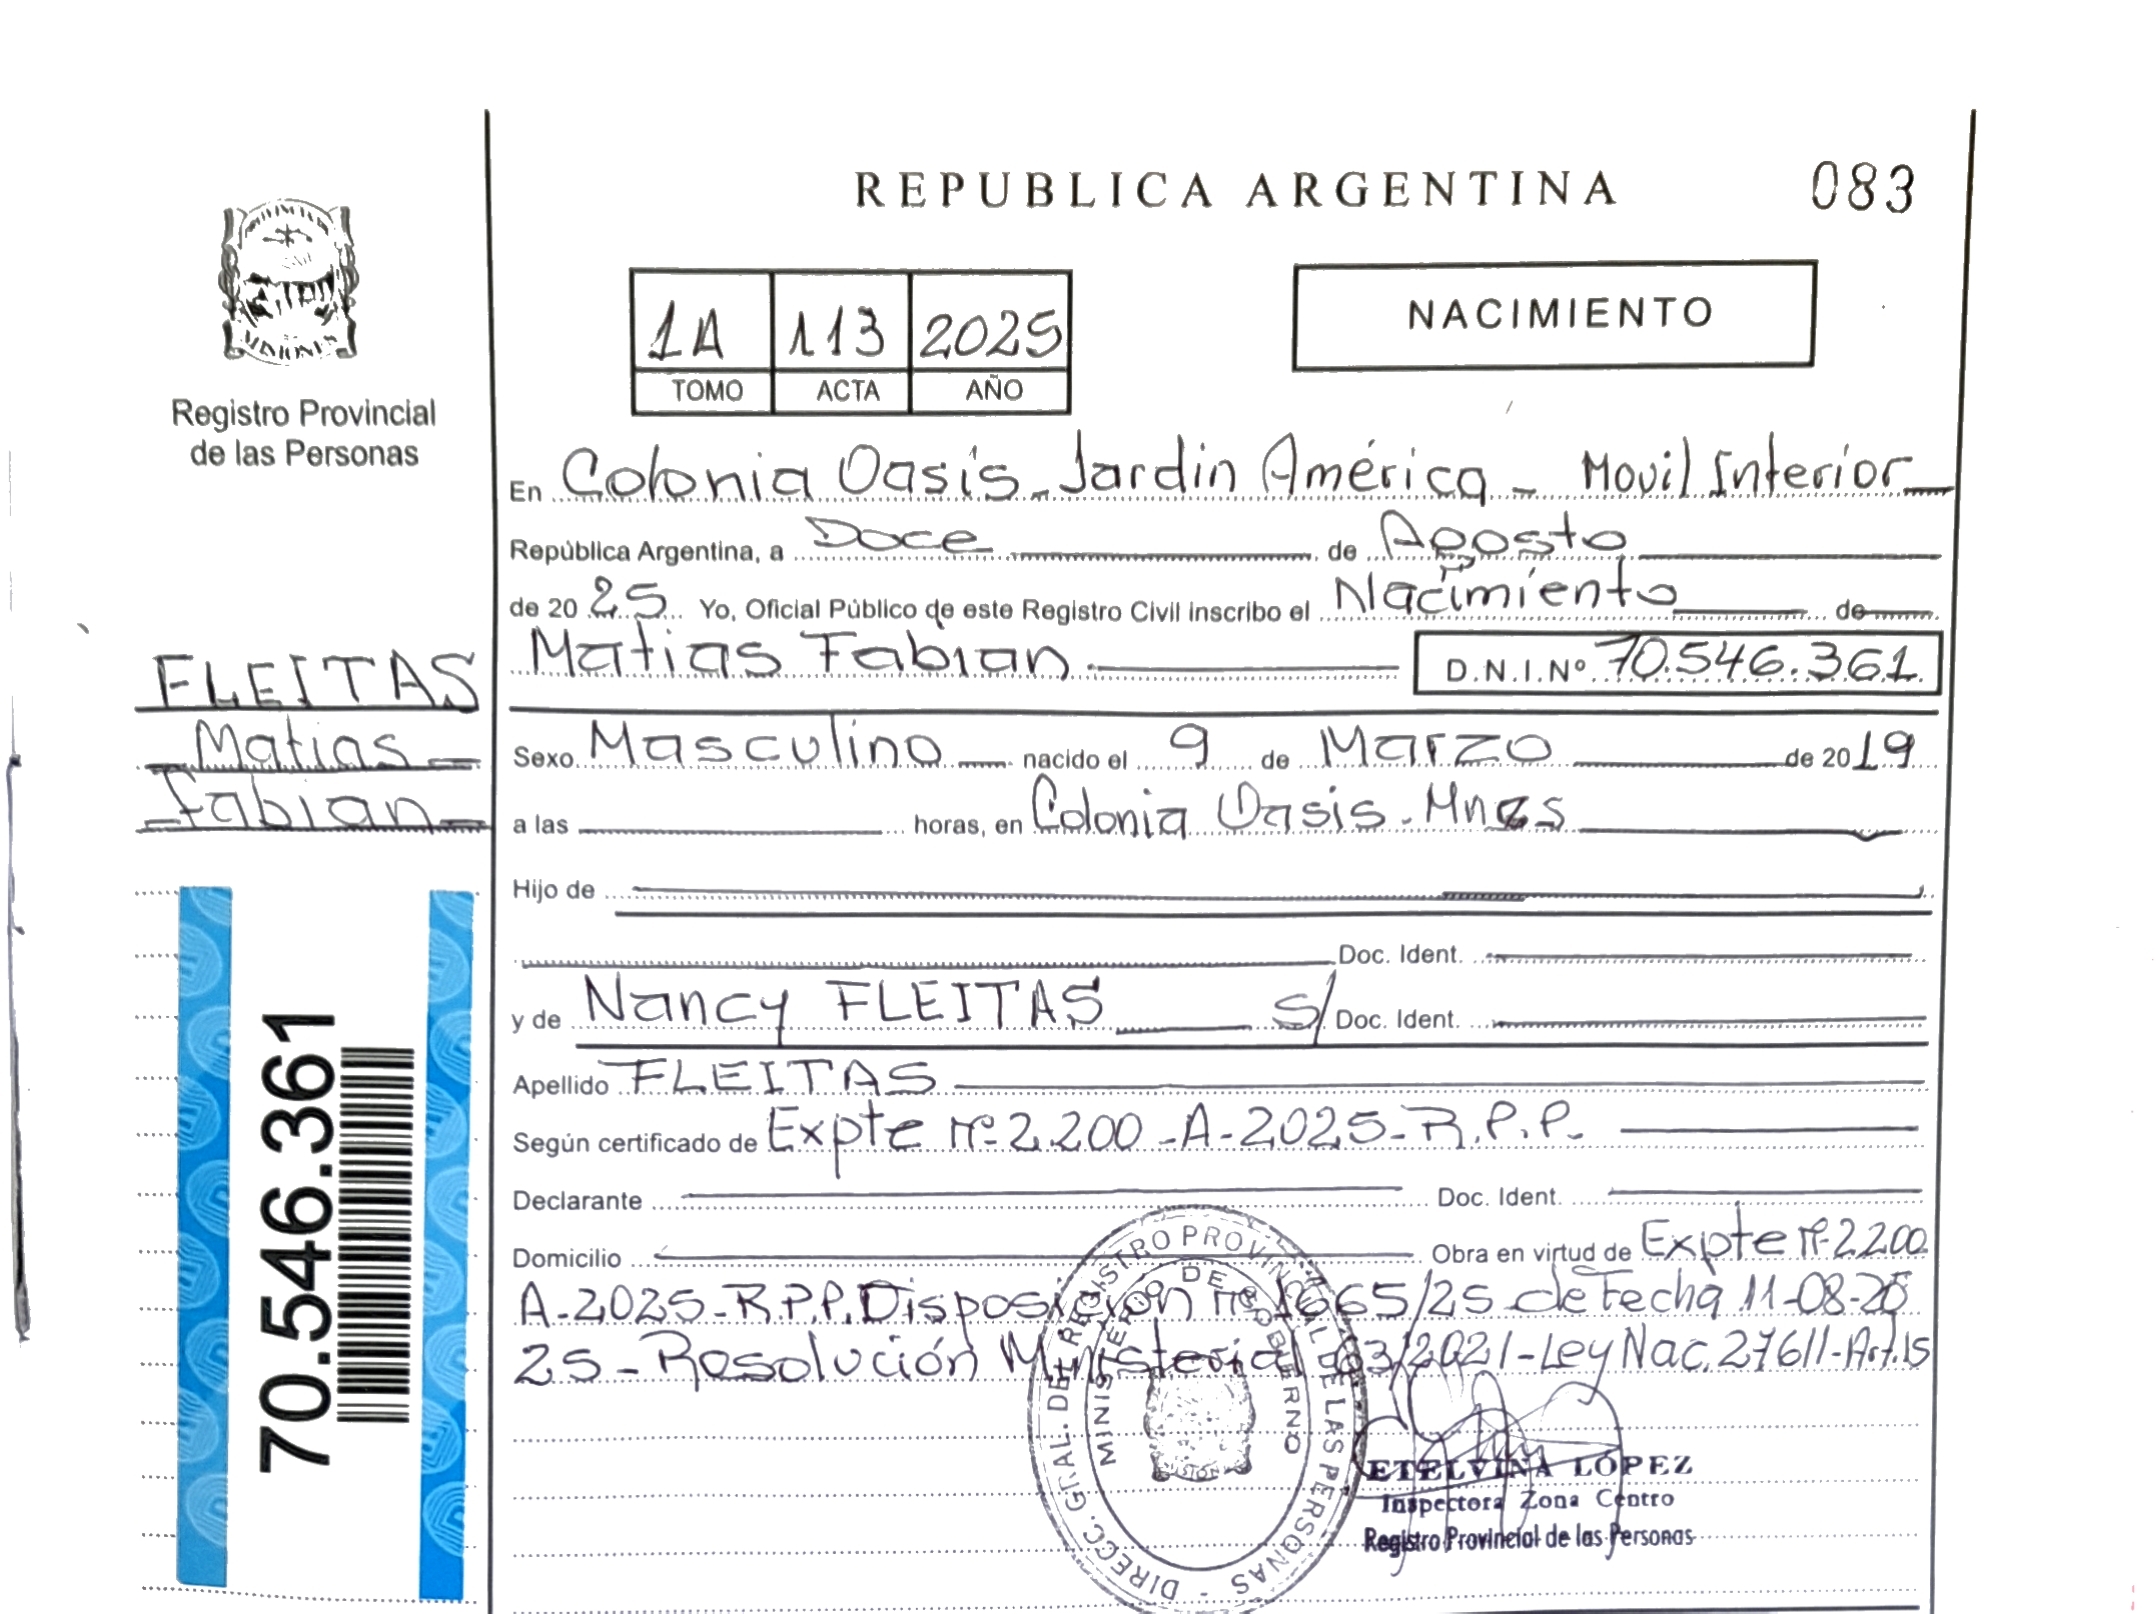 REPUBLICA ARGENTINA 083
NACIMIENTO
1A 113 2025
TOMO ACTA AÑO
Registro Provincial
de las Personas
En Colonia Oasis - Jardin América - Movil Interior
República Argentina, a Doce de Agosto
de 20 25 Yo, Oficial Público de este Registro Civil inscribo el Nacimiento de
Matias Fabian D.N.I.Nº 70.546.361
FLEITAS
Matias
Fabian
Sexo Masculino nacido el 9 de Marzo de 20 19
a las horas, en Colonia Oasis - Mnes
Hijo de
Doc. Ident.
y de Nancy FLEITAS S/ Doc. Ident.
Apellido FLEITAS
Según certificado de Expte nº 2.200 - A - 2025 - R.P.P.
Declarante Doc. Ident.
Domicilio Obra en virtud de Expte nº 2200
A-2025-R.P.P. Disposición nº 1665/25 de fecha 11-08-20
25 - Resolución Ministerial /2021 - Ley Nac. 27611 - Art. 15
70.546.361
DIRECC. GRAL. DE REGISTRO PROVINCIAL DE LAS PERSONAS
MINISTERIO DE GOBIERNO
ETELVINA LÓPEZ
Inspectora Zona Centro
Registro Provincial de las Personas